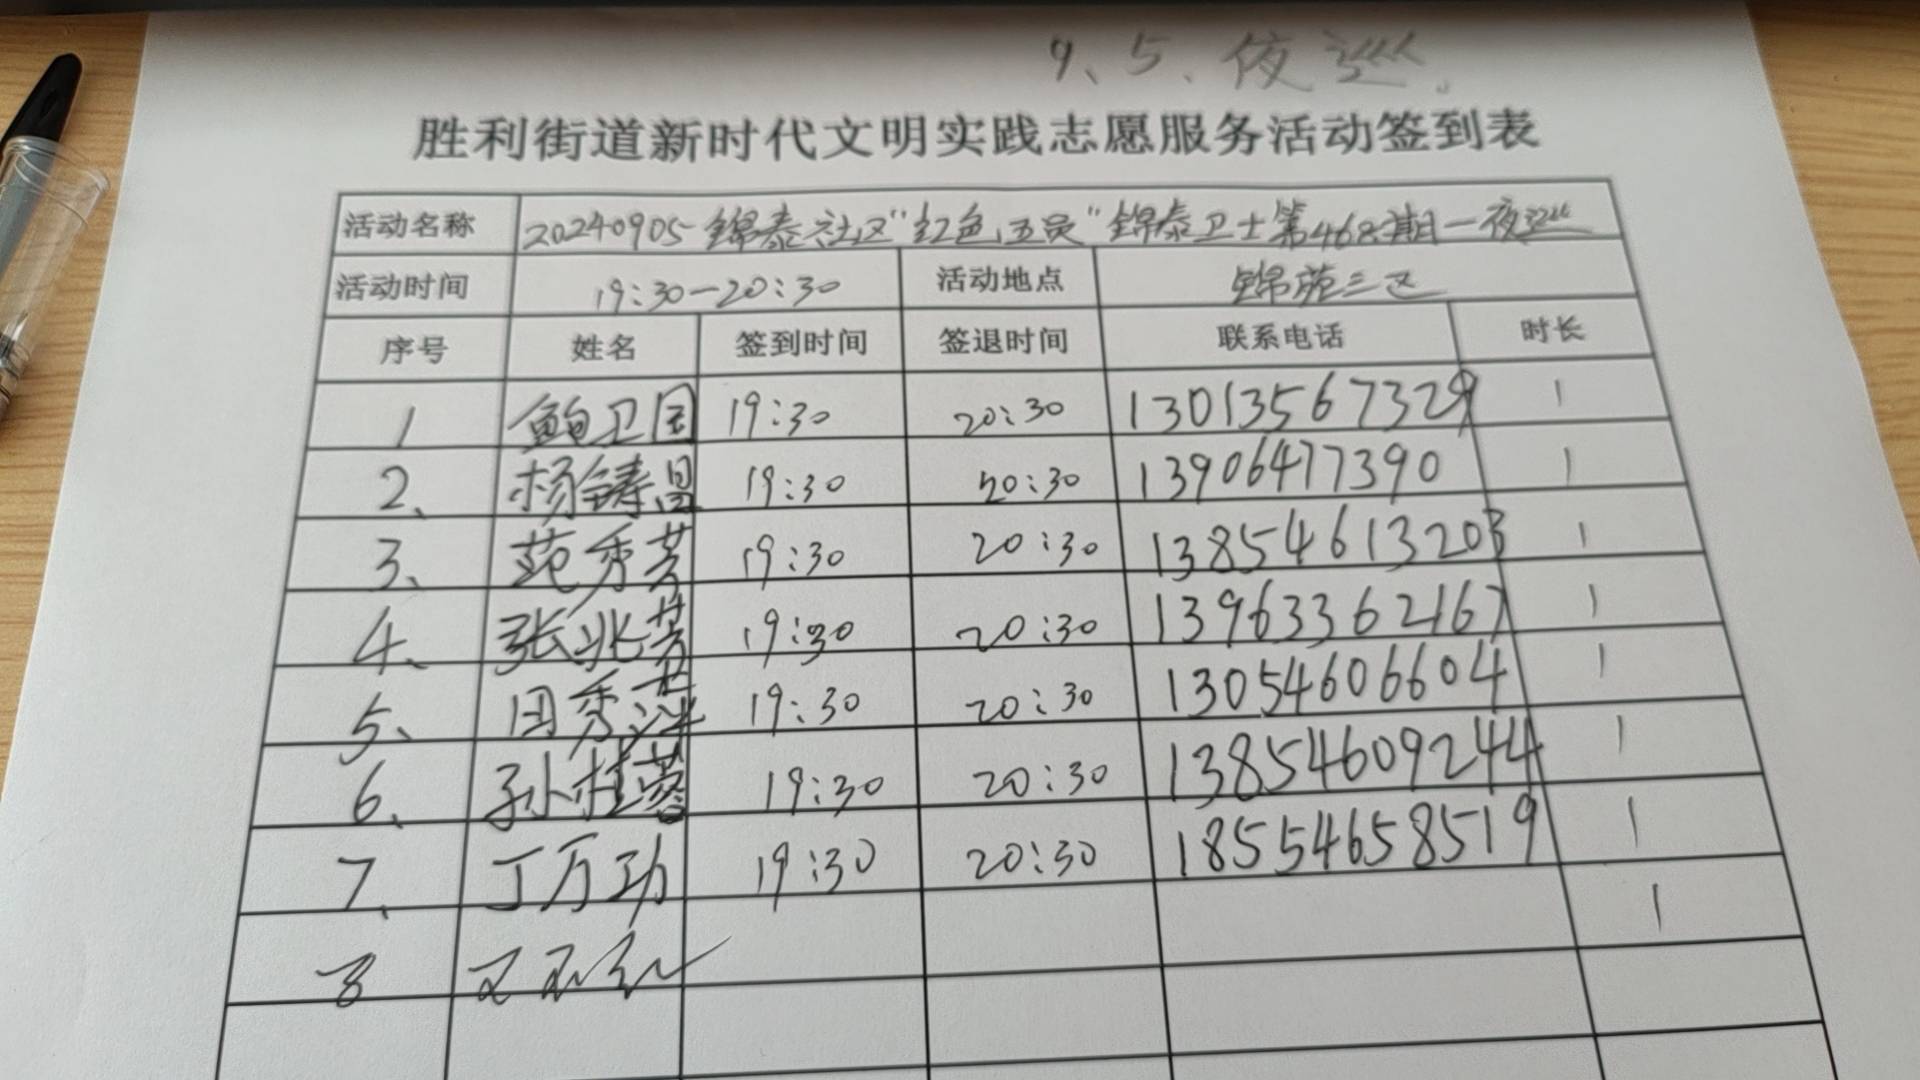 9、5、夜巡。
胜利街道新时代文明实践志愿服务活动签到表
活动名称 20240905锦泰社区"红色五员"锦泰卫士第468期一夜巡
活动时间 19:30—20:30 活动地点 锦苑三区
序号 姓名 签到时间 签退时间 联系电话 时长
1 鲍卫国 19:30 20:30 13013567329 1
2、 杨铸昌 19:30 20:30 13906417390 1
3、 苑秀芳 19:30 20:30 13854613203 1
4、 张兆芳 19:30 20:30 13963362167 1
5、 田秀 19:30 20:30 13054606604 1
6、 孙桂蓉 19:30 20:30 13854609244 1
7、 丁万功 19:30 20:30 18554658519 1
8 1